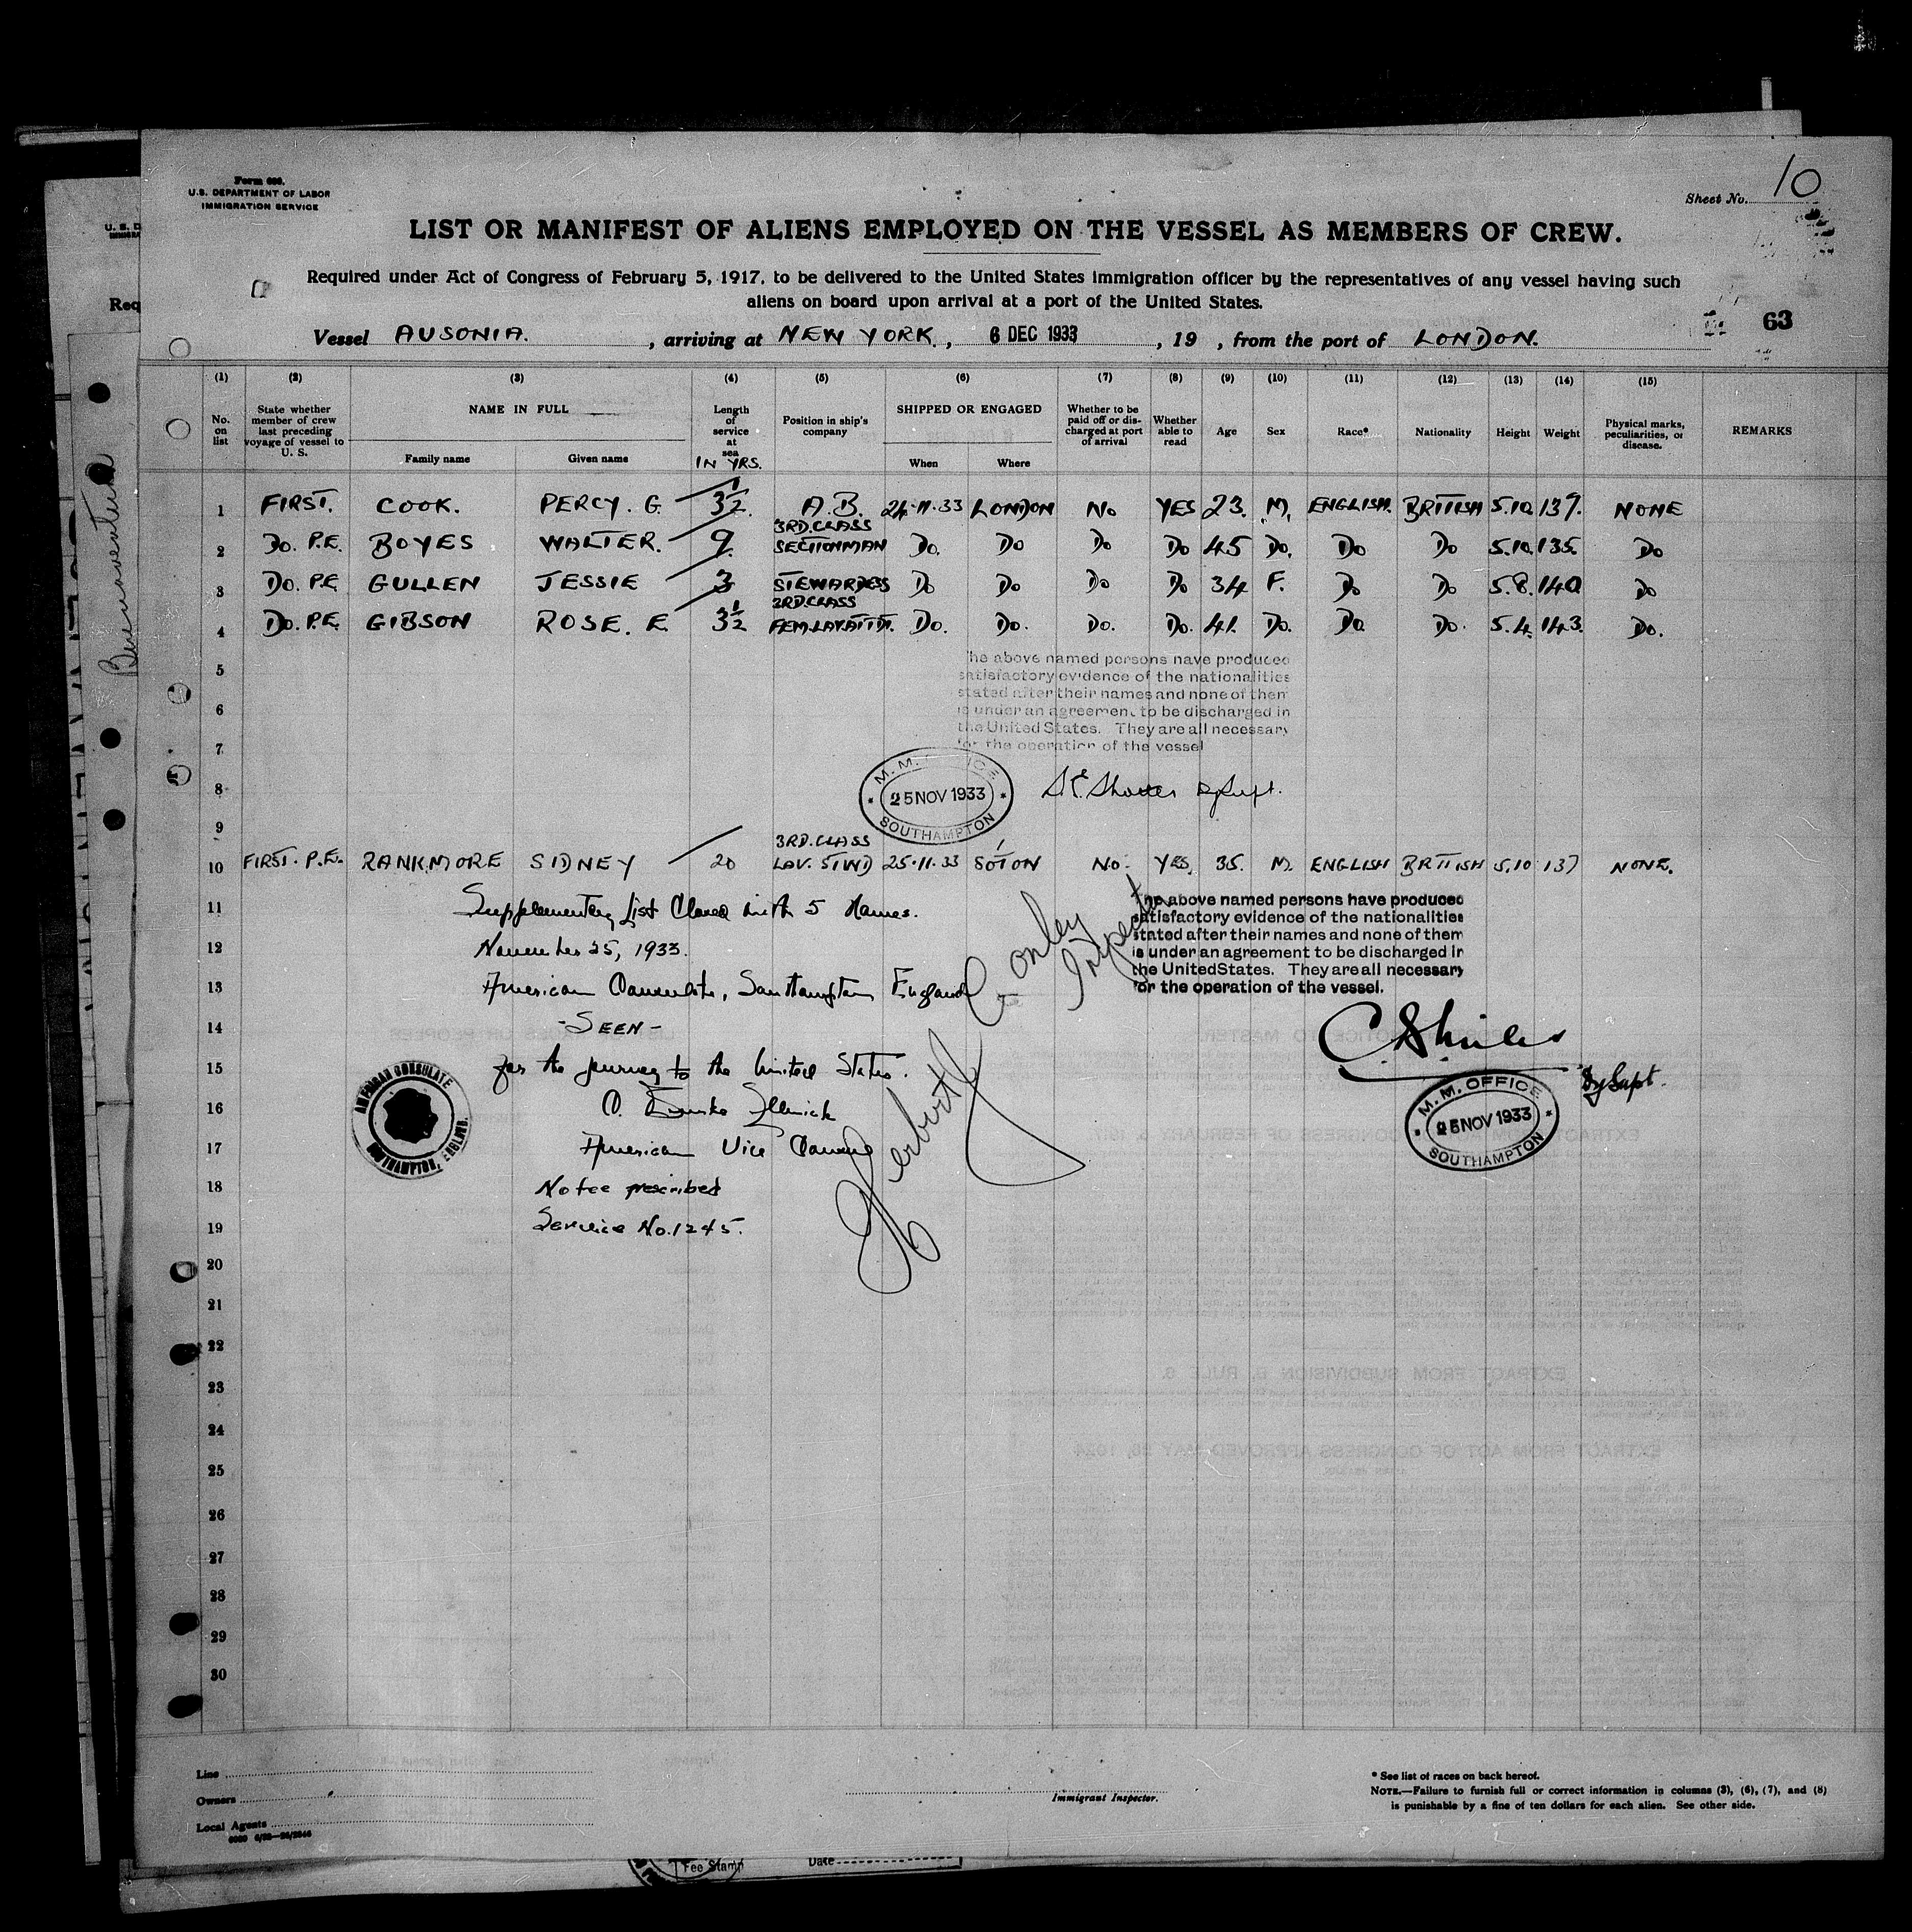 Form 680.
U.S. DEPARTMENT OF LABOR
IMMIGRATION SERVICE
Sheet No. 10
LIST OR MANIFEST OF ALIENS EMPLOYED ON THE VESSEL AS MEMBERS OF CREW.
Required under Act of Congress of February 5, 1917, to be delivered to the United States immigration officer by the representatives of any vessel having such
aliens on board upon arrival at a port of the United States.
63
Vessel AUSONIA. , arriving at NEW YORK. , 6 DEC 1933 , 19 , from the port of LONDON.
(1) (2) (3) (4) (5) (6) (7) (8) (9) (10) (11) (12) (13) (14) (15)
No. on list State whether member of crew last preceding voyage of vessel to U. S. NAME IN FULL Family name Given name Length of service at sea IN YRS. Position in ship's company SHIPPED OR ENGAGED When Where Whether to be paid off or discharged at port of arrival Whether able to read Age Sex Race* Nationality Height Weight Physical marks, peculiarities, or disease. REMARKS
1 FIRST. COOK. PERCY. G. 3½ A.B. 24.11.33 LONDON No YES 23. M. ENGLISH. BRITISH 5.10. 137. NONE
2 Do. P.E. BOYES WALTER. 9. 3RD.CLASS SECTIONMAN Do. Do Do Do 45 Do. Do Do 5.10. 135. Do
3 Do. P.E. GULLEN JESSIE 3 STEWARDESS Do Do Do Do 34 F. Do Do 5.8. 140. Do
4 Do. P.E. GIBSON ROSE. E. 3½ 3RD.CLASS FEM.LAV.ATTDT. Do. Do. Do. Do. 41. Do. Do. Do. 5.4. 143. Do.
5
6
7
The above named persons have produced
satisfactory evidence of the nationalities
stated after their names and none of them
is under an agreement to be discharged in
the United States. They are all necessary
for the operation of the vessel
8
M.M. OFFICE
25 NOV 1933
SOUTHAMPTON
Dy Supt.
9
10 FIRST. P.E. RANKMORE SIDNEY 20 3RD.CLASS LAV. STWD 25.11.33 SO'TON No. YES. 35. M. ENGLISH BRITISH 5.10 137 NONE.
The above named persons have produced
satisfactory evidence of the nationalities
stated after their names and none of them
is under an agreement to be discharged in
the United States. They are all necessary
for the operation of the vessel.
11 Supplementary List Closed with 5 Names.
12 November 25, 1933.
13 American Consulate, Southampton, England
14 -SEEN-
15 for the journey to the United States.
16
17 American Vice Consul
18 No fee prescribed
19 Service No. 1245.
AMERICAN CONSULATE
SOUTHAMPTON, ENGLAND.
Herbert Conley
Inspector
Dy Supt.
M.M. OFFICE
25 NOV 1933
SOUTHAMPTON
20
21
22
23
24
25
26
27
28
29
30
Line
Owners
Local Agents
Immigrant Inspector.
* See list of races on back hereof.
NOTE.—Failure to furnish full or correct information in columns (3), (6), (7), and (8)
is punishable by a fine of ten dollars for each alien. See other side.
Fee Stamp
Date